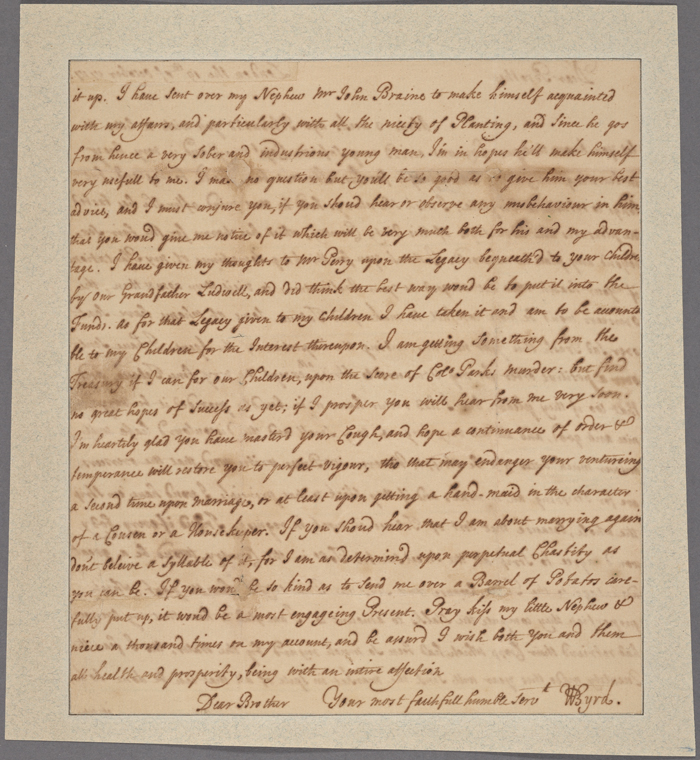 it up. I have sent over my Nephew Mr John Braine to make himself acquainted
with my affairs, and particularly with all the nicety of Planting, and since he gos
from hence a very sober and industrious young man, I'm in hopes he'll make himself
very usefull to me. I make no question but, youll be so good as to give him your best
advice, and I must conjure you, if you shoud hear or observe any misbehaviour in him
that you woud give me notice of it which will be very much both for his and my advan-
tage. I have given my thoughts to Mr Perry upon the Legacy bequeath'd to your Children
by our Grandfather Ludwell, and did think the best way woud be to put it into the
Funds. as for that Legacy given to my Children I have taken it and am to be accounta
ble to my Children for the Interest thereupon. I am getting something from the
Treasury if I can for our Children, upon the score of Colo Parks murder: but find
no great hopes of Success as yet; if I prosper you will hear from me very soon.
I'm heartily glad you have masterd your Cough, and hope a continuance of order &
temperance will restore you to perfect vigour, tho that may endanger your ventureing
a second time upon marriage, or at least upon getting a hand-maid in the character
of a Cousen or a Housekeeper. If you shoud hear that I am about marrying again
dont beleive a syllable of it, for I am as determind upon perpetual Chastity as
you can be. If you woud be so kind as to send me over a Barrel of Potatos care-
fully put up, it woud be a most engageing Present. Pray kiss my little Nephew &
niece a thousand times on my account, and be assurd I wish both you and them
all health and prosperity, being with an intire affection
Dear Brother Your most faithfull humble servt WByrd.